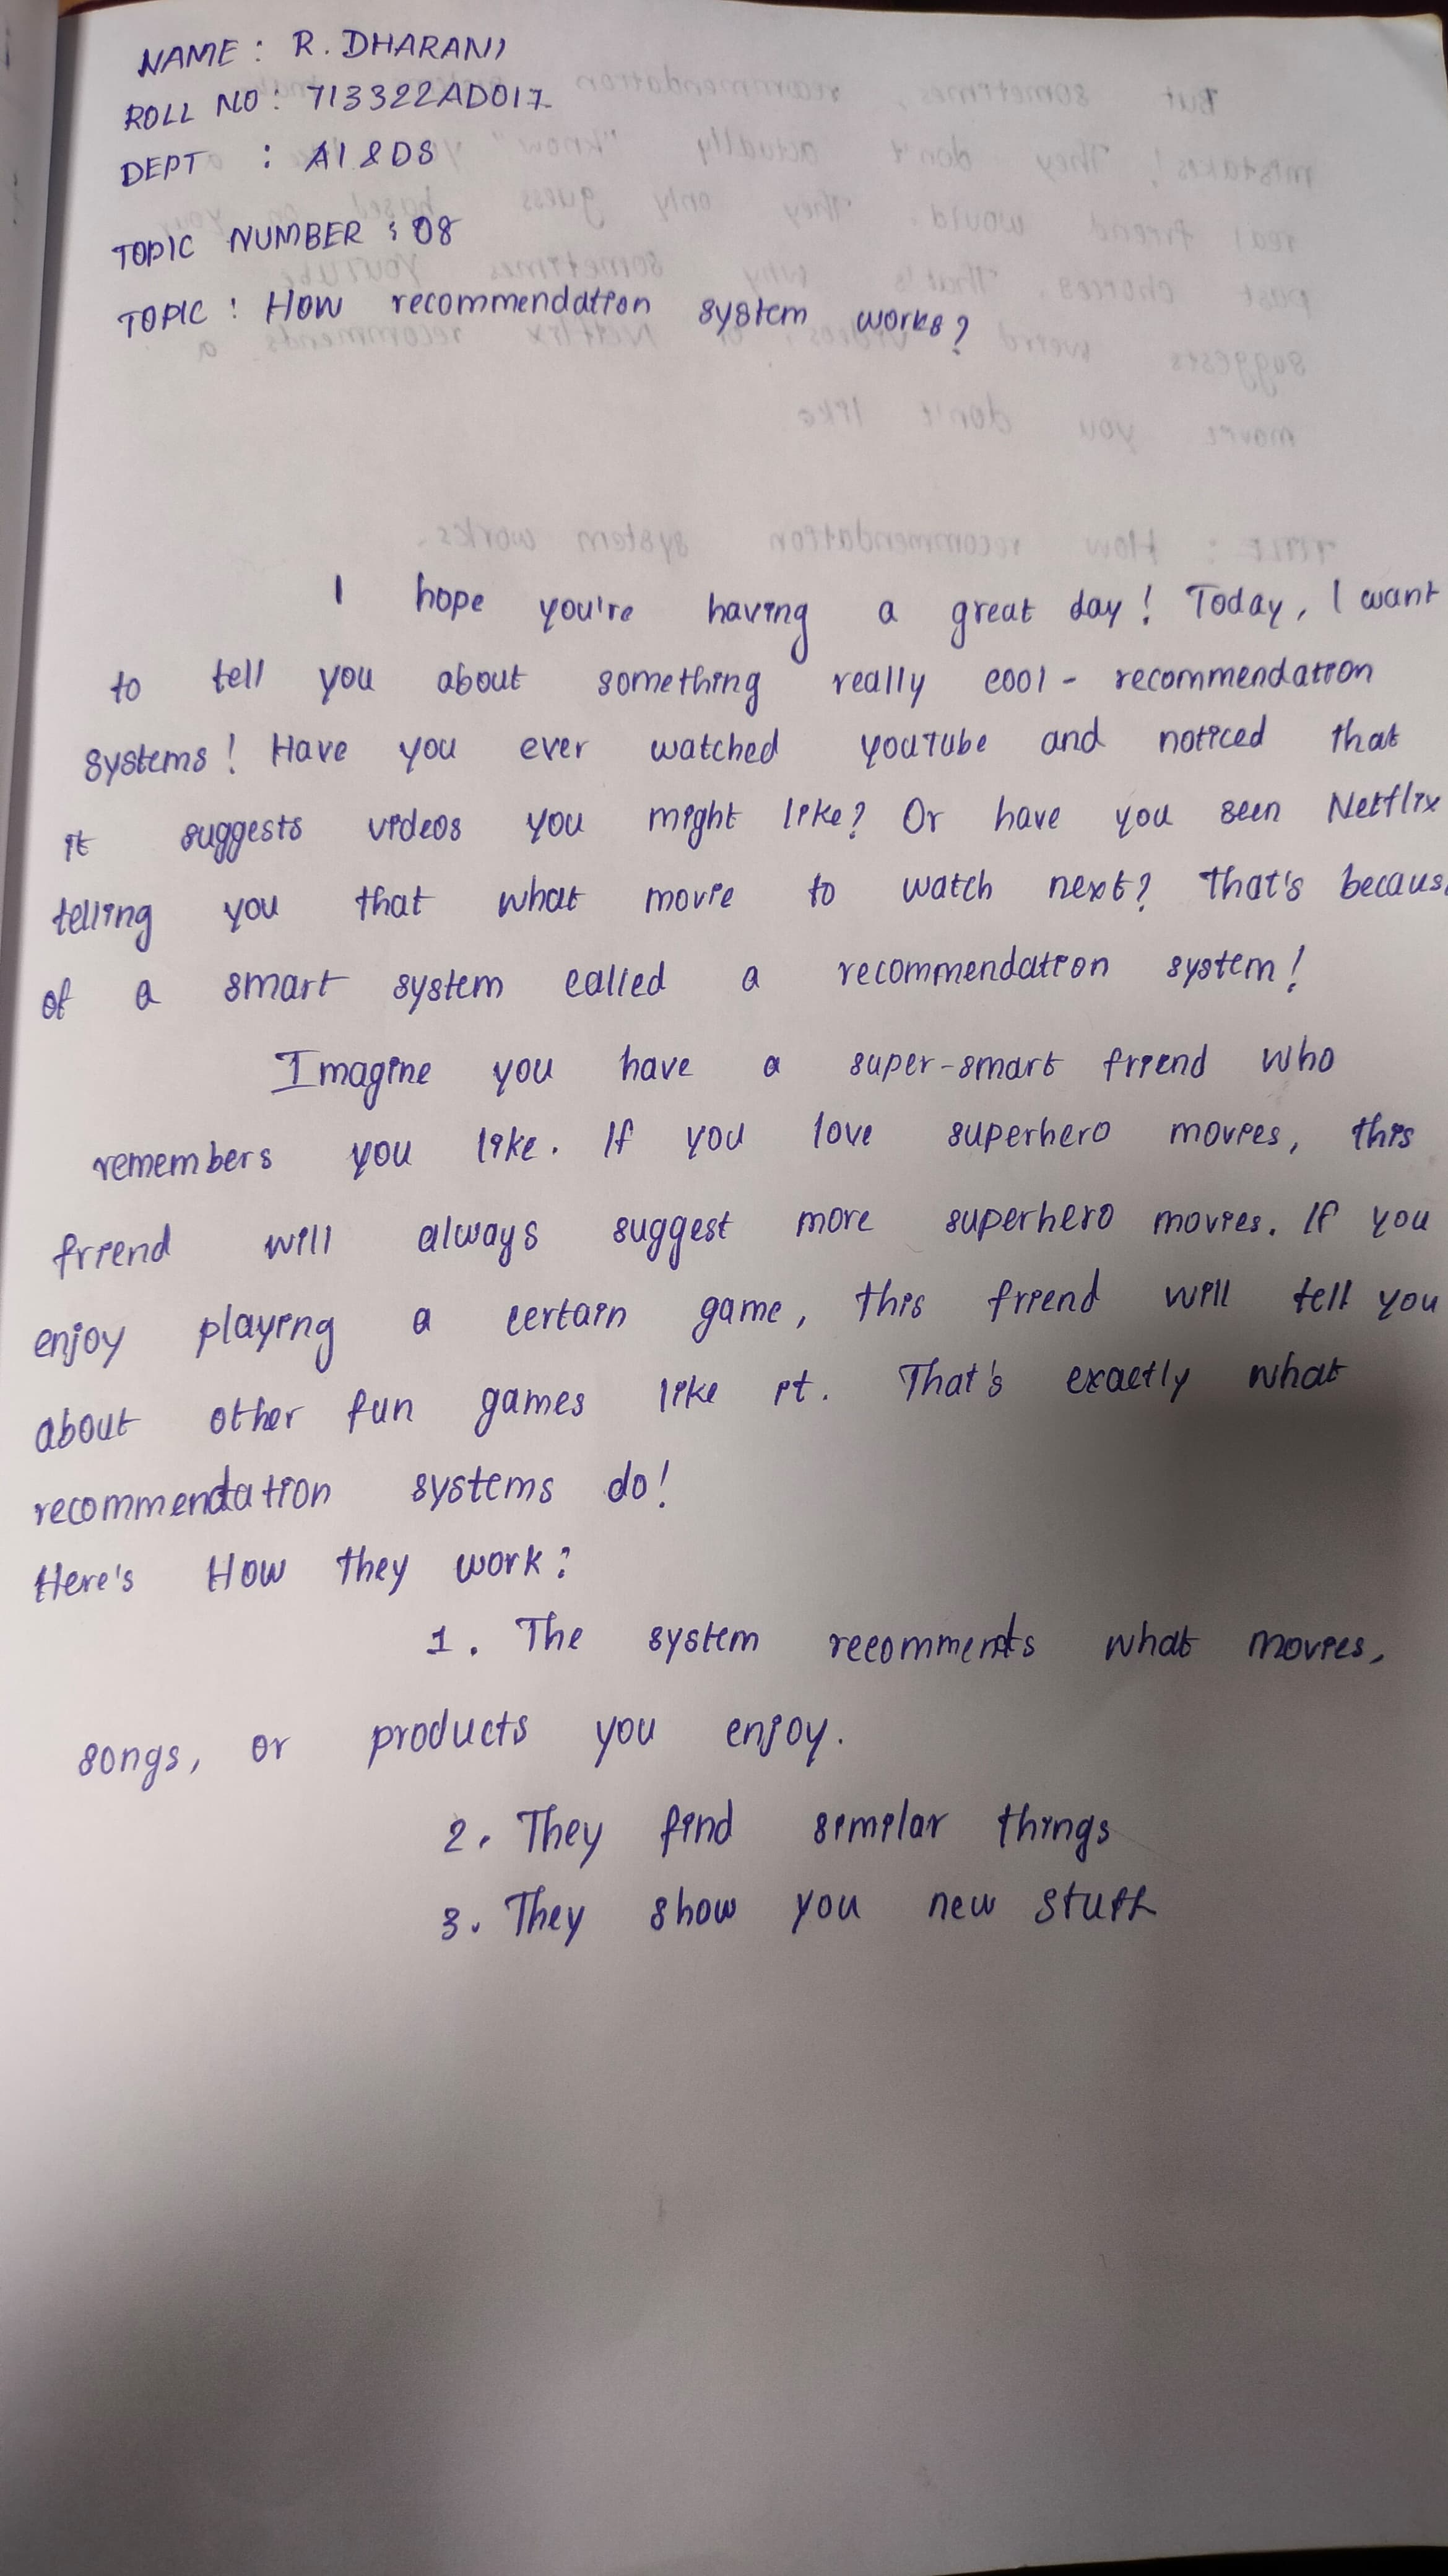 NAME : R. DHARANI
ROLL NO : 713322AD017
DEPT : AI & DS
TOPIC NUMBER : 08
TOPIC : How recommendation system works?
I hope you're having a great day! Today, I want
to tell you about something really cool - recommendation
systems! Have you ever watched youTube and noticed that
it suggests videos you might like? Or have you seen Netflix
telling you that what movie to watch next? That's becaus
of a smart system called a recommendation system!
Imagine you have a super-smart friend who
remembers you like. If you love superhero movies, this
friend will always suggest more superhero movies. If you
enjoy playing a certain game, this friend will tell you
about other fun games like it. That's exactly what
recommendation systems do!
Here's How they work:
1. The system recomments what movies,
songs, or products you enjoy.
2. They find similar things
3. They show you new stuff